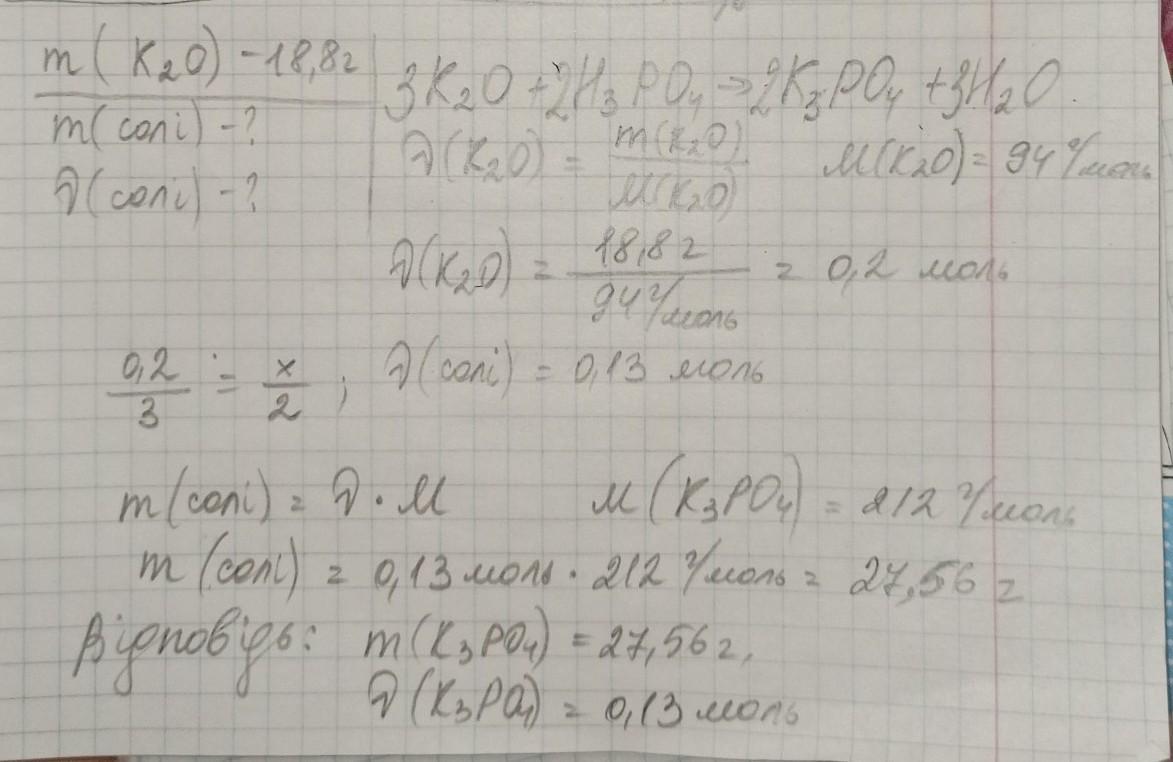 m(K₂O) - 18,8г
m(солі) - ?
ν(солі) - ?
3K₂O + 2H₃PO₄ → 2K₃PO₄ + 3H₂O
ν(K₂O) = m(K₂O)/M(K₂O) M(K₂O) = 94 г/моль
ν(K₂O) = 18,8г/94 г/моль = 0,2 моль
0,2/3 = x/2 ; ν(солі) = 0,13 моль
m(солі) = ν · M M(K₃PO₄) = 212 г/моль
m(солі) = 0,13 моль · 212 г/моль = 27,56 г
Відповідь: m(K₃PO₄) = 27,56 г,
ν(K₃PO₄) = 0,13 моль